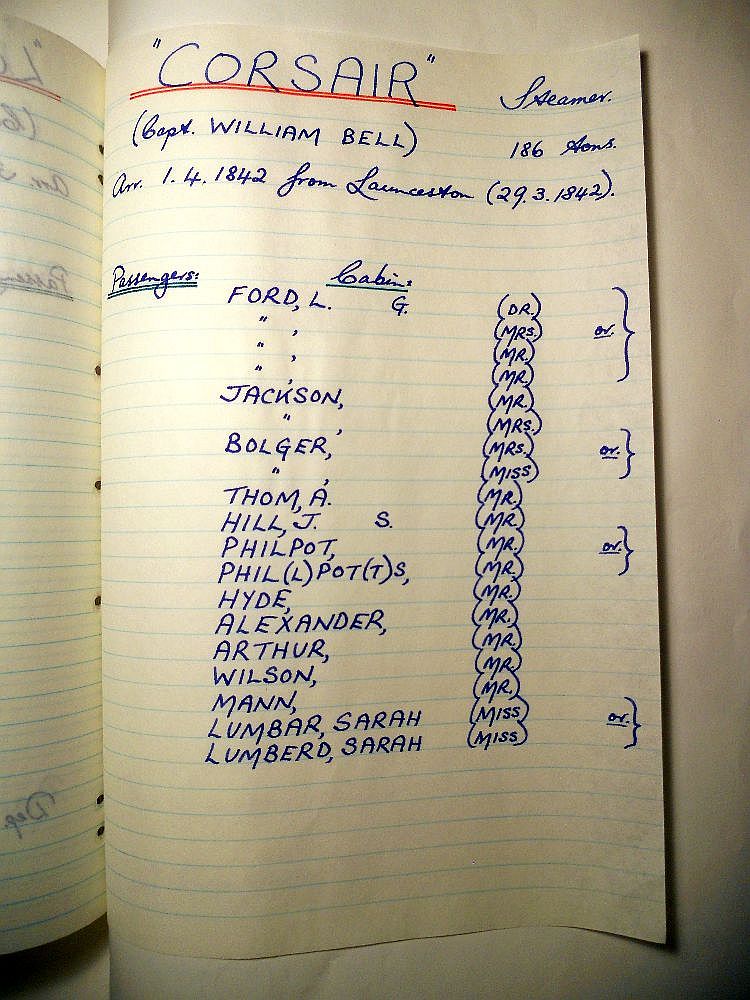 "CORSAIR" Steamer.
(Capt. WILLIAM BELL) 186 tons.
Arr. 1.4.1842 from Launceston (29.3.1842).
Passengers: Cabin:
FORD, L. G. (DR.)
" , (MRS.) or.
" , (MR.)
" , (MR.)
JACKSON, (MR.)
" , (MRS.)
BOLGER, (MRS.) or.
" , (MISS)
THOM, A. (MR.)
HILL, J. S. (MR.)
PHILPOT, (MR.) or.
PHIL(L)POT(T)S, (MR.)
HYDE, (MR.)
ALEXANDER, (MR.)
ARTHUR, (MR.)
WILSON, (MR.)
MANN, (MR.)
LUMBAR, SARAH (MISS) or.
LUMBERD, SARAH (MISS)